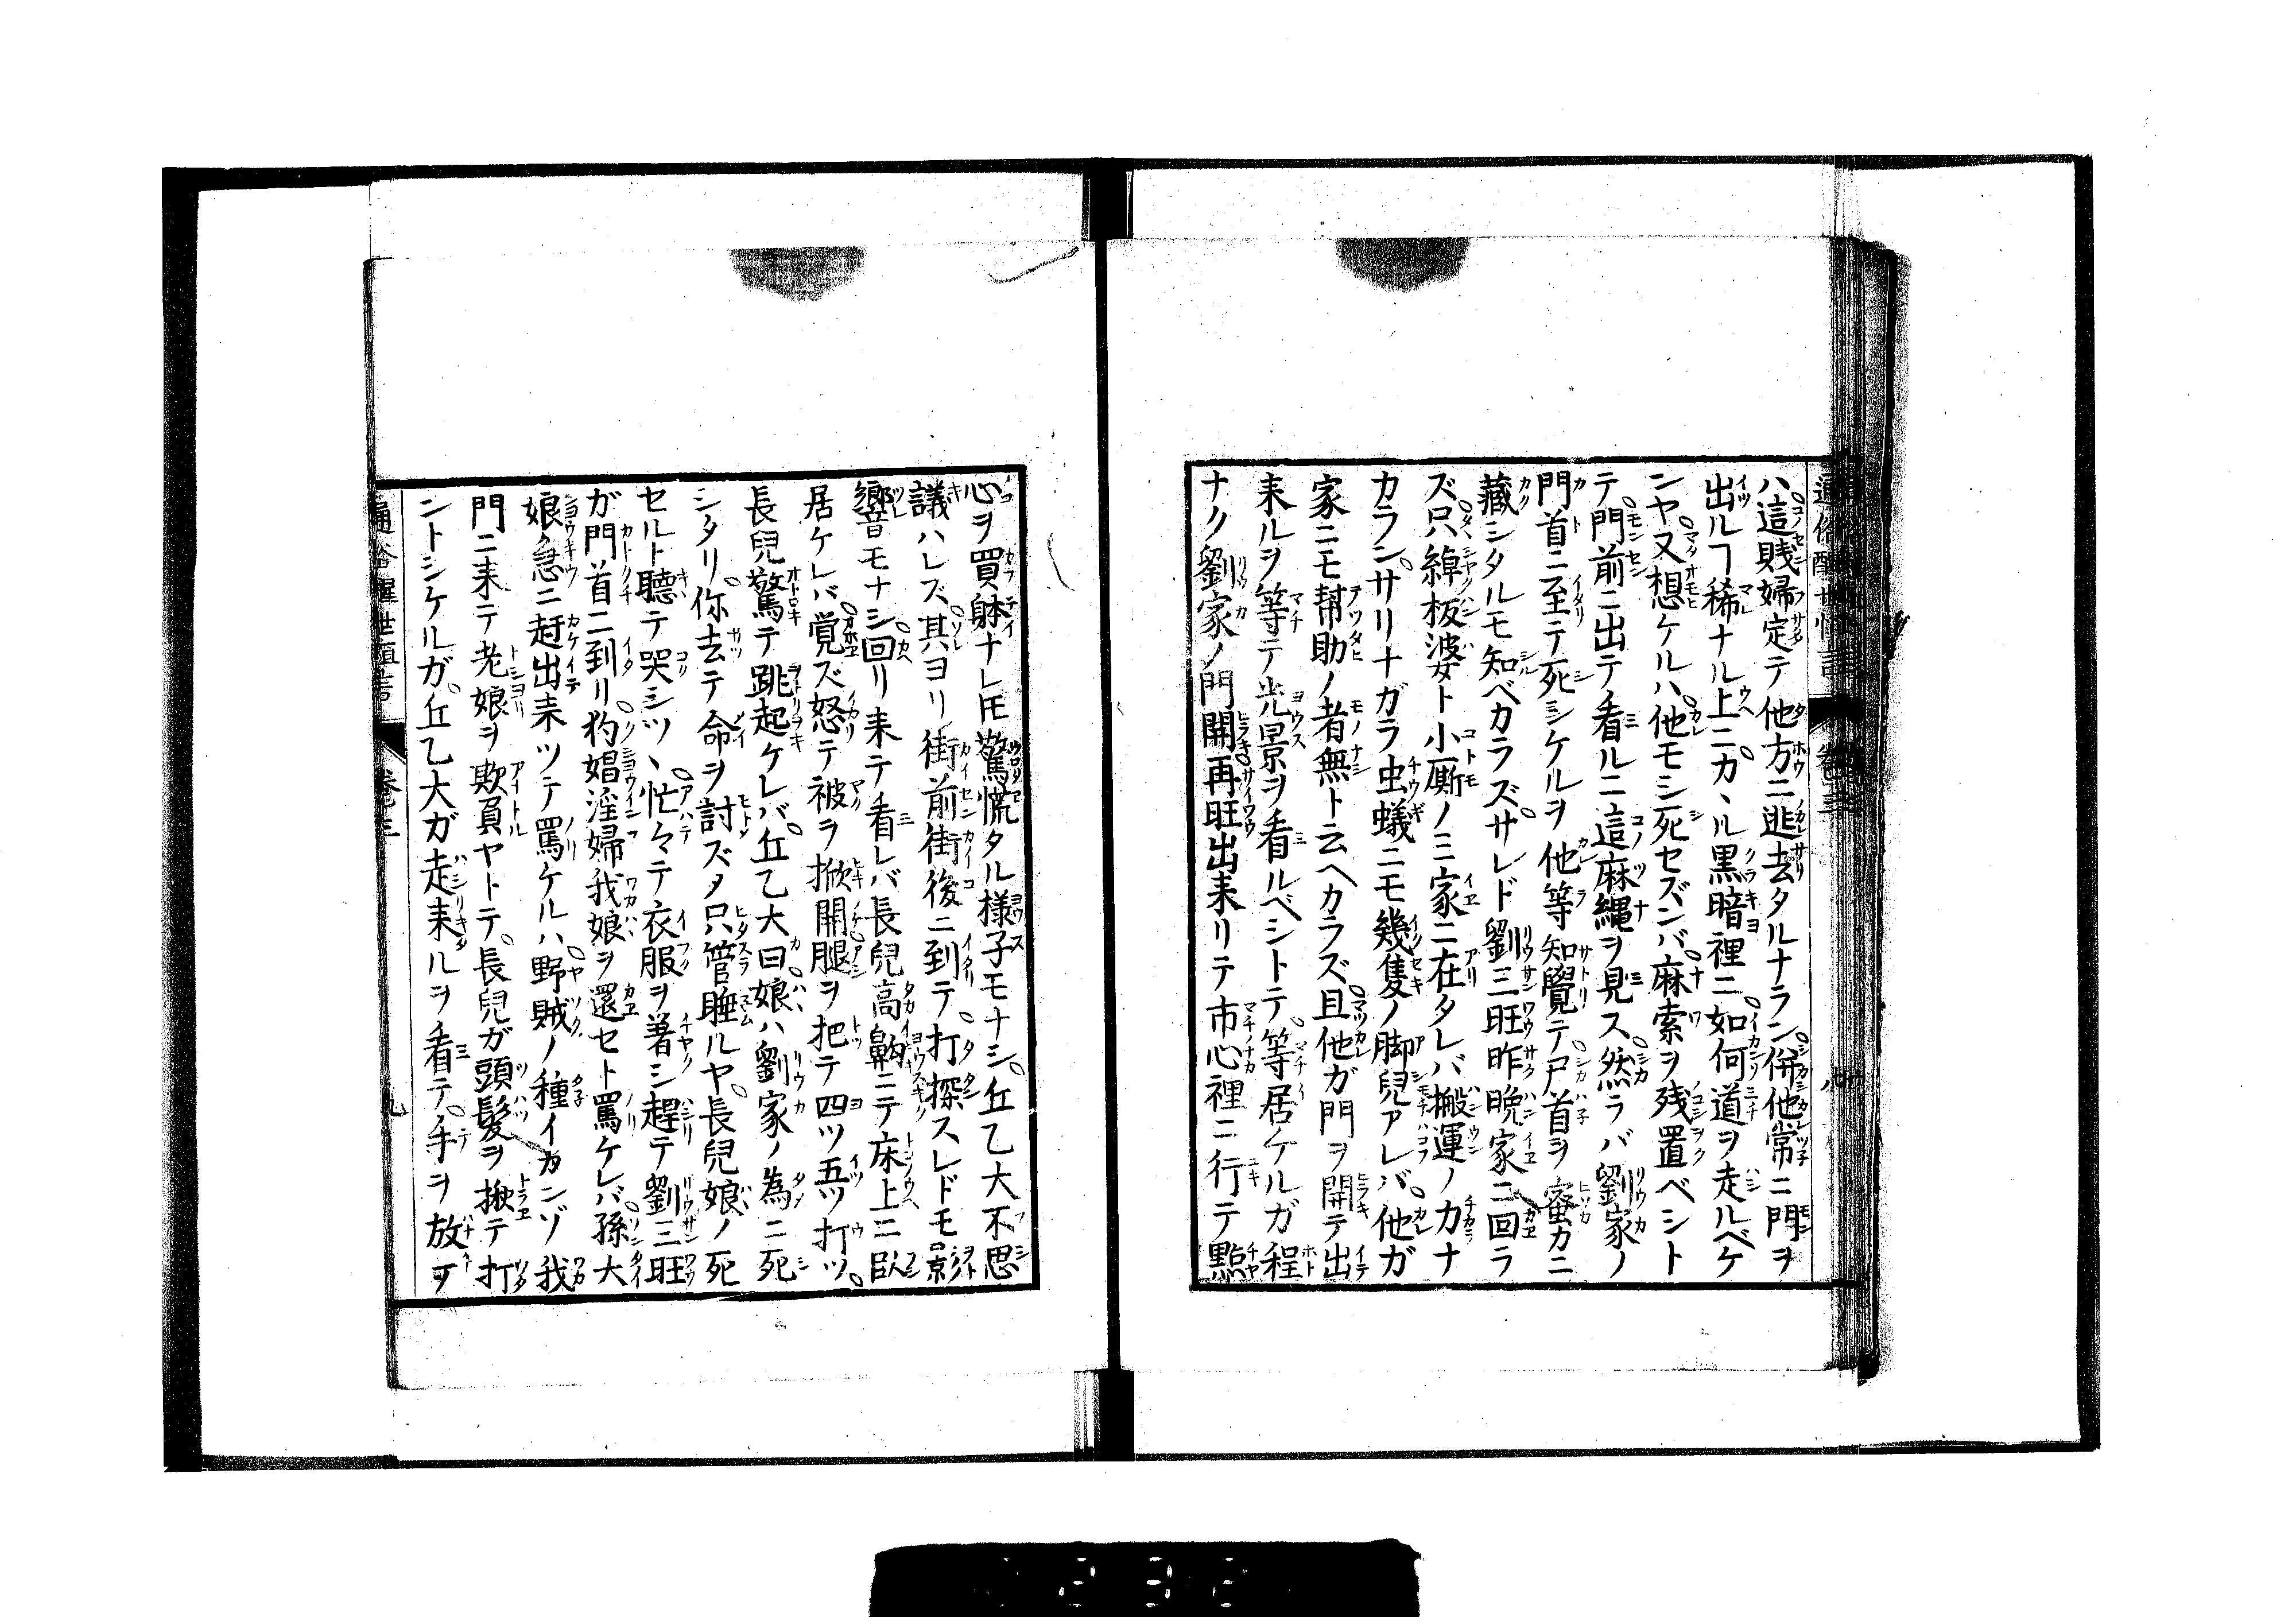 ハ這賤婦定テ他方ニ逃去タルナラン。併他常ニ門ヲ
出ルヿ稀ナル上ニカヽル黒暗裡ニ。如何道ヲ走ルベケ
ンヤ。又想ケルハ。他モシ死セズンバ。麻索ヲ残置ベシト
テ。門前ニ出テ看ルニ這麻縄ヲ見ス。然ラバ劉家ノ
門首ニ至テ死シケルヲ他等知覺テ。尸首ヲ蜜カニ
藏シタルモ知ベカラズ。サレド劉三旺昨晩家ニ回ラ
ズ。只綽板婆ト小厮ノミ家ニ在タレバ搬運ノ力ナ
カラン。サリナガラ虫蟻ニモ幾隻ノ脚兒アレバ。他ガ
家ニモ幇助ノ者無ト云ヘカラズ。且他ガ門ヲ開テ出
来ルヲ等テ光景ヲ看ルベシトテ。等居ケルガ程
ナク劉家ノ門開。再旺出来リテ市心裡ニ行テ點
心ヲ買躰ナレ𪜈驚慌タル様子モナシ。丘乙大不思
議ハレズ。其ヨリ街前街後ニ到テ。打探スレドモ景
響音モナシ。回リ来テ看レバ長兒高鼾ニテ床上ニ臥
居ケレバ。覚ズ怒テ被ヲ掀開。腿ヲ把テ四ツ五ツ打ツ。
長兒驚テ跳起ケレバ。丘乙大曰。娘ハ劉家ノ為ニ死
シタリ。你去テ命ヲ討ズメ只管睡ルヤ。長兒娘ノ死
セルト聽テ哭シツヽ。忙々テ衣服ヲ著シ趕テ劉三旺
ガ門首ニ到リ。狗娼淫婦我娘ヲ還セト罵ケレバ。孫大
娘急ニ赶出来ツテ罵ケルハ。野賊ノ種イカンゾ我
門ニ来テ老娘ヲ欺負ヤトテ。長兒ガ頭髪ヲ揪テ打
ントシケルガ。丘乙大ガ走来ルヲ看テ。手ヲ放ヲ
通俗醒世恒言
巻三
九